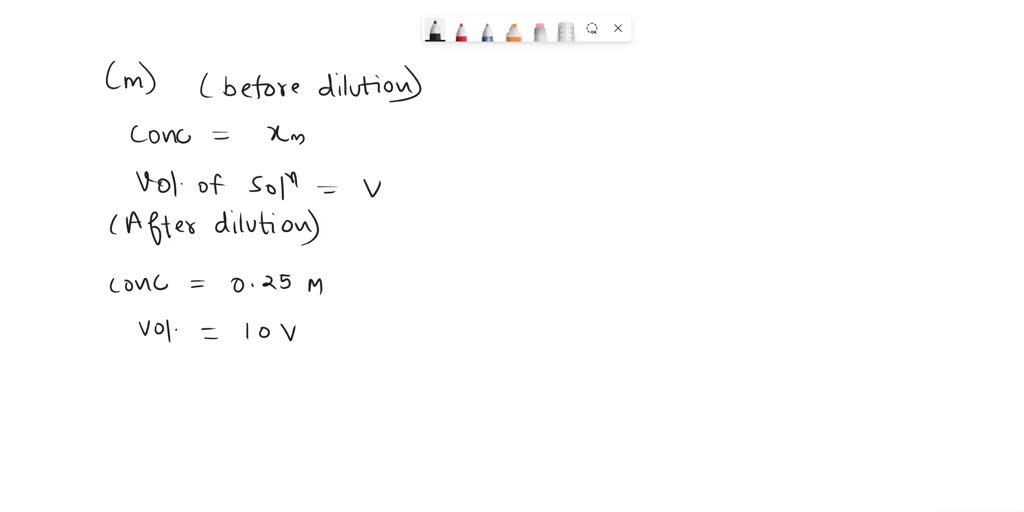 (m) (before dilution)
Conc = xm
Vol. of Solⁿ = V
(After dilution)
Conc = 0.25 M
Vol. = 10 V